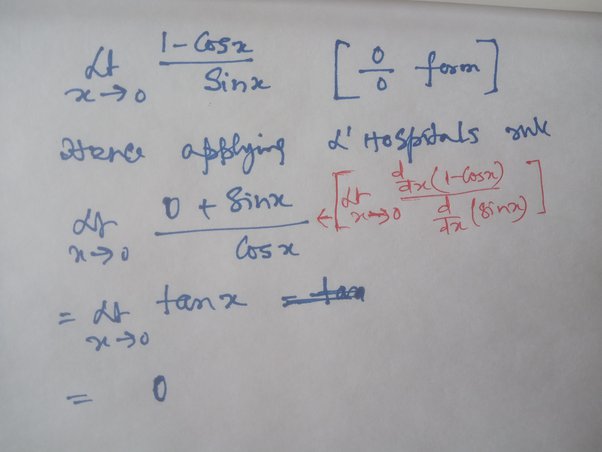 Lt x→0 (1-Cosx)/(Sinx) [0/0 form]
Hence applying L' Hospitals rule
Lt x→0 (0 + Sinx)/(Cosx) ←[Lt x→0 (d/dx(1-Cosx))/(d/dx(Sinx))]
= Lt x→0 tanx = tan
= 0